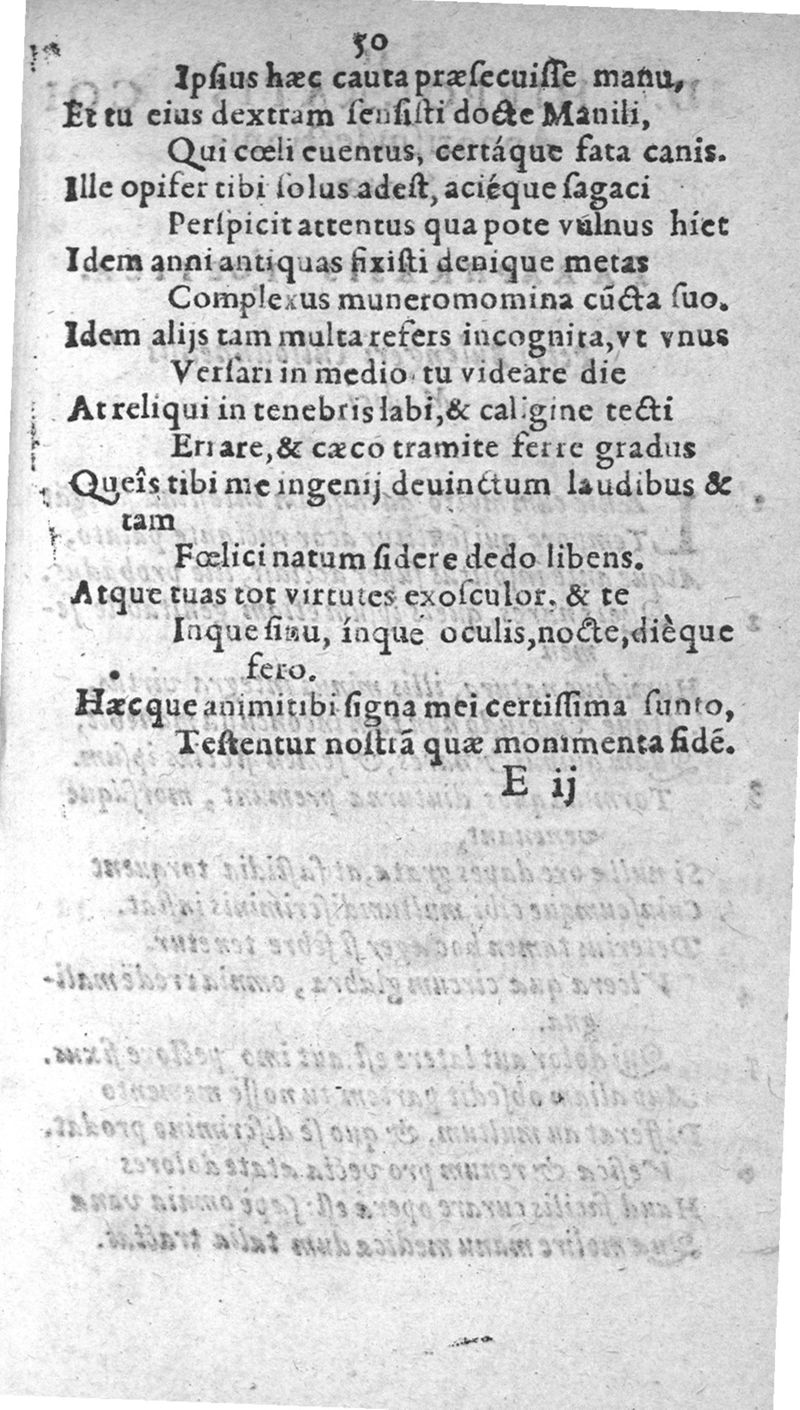 50
Ipſius hæc cauta præſecuiſſe manu,
Et tu eius dextram ſenſiſti docte Manili,
Qui cœli euentus, certáque fata canis.
Ille opifer tibi ſolus adeſt, aciéque ſagaci
Perſpicit attentus qua pote vulnus hiet
Idem anni antiquas fixiſti denique metas
Complexus numeromomina cūcta ſuo.
Idem alijs tam multa refers incognita, vt vnus
Verſari in medio tu videare die
At reliqui in tenebris labi, & caligine tecti
Errare, & cæco tramite ferre gradus
Queîs tibi me ingenij deuinctum laudibus &
tam
Fœlici natum ſidere dedo libens.
Atque tuas tot virtutes exoſculor, & te
Inque ſinu, ínque oculis, nocte, dièque
fero.
Hæcque animi tibi ſigna mei certiſſima ſunto,
Teſtentur noſtrā quæ monimenta fidē.
E ij